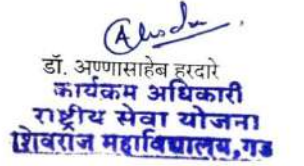 डॉ. अण्णासाहेब हरदारे
कार्यक्रम अधिकारी
राष्ट्रीय सेवा योजना
शिवराज महाविद्यालय, गड